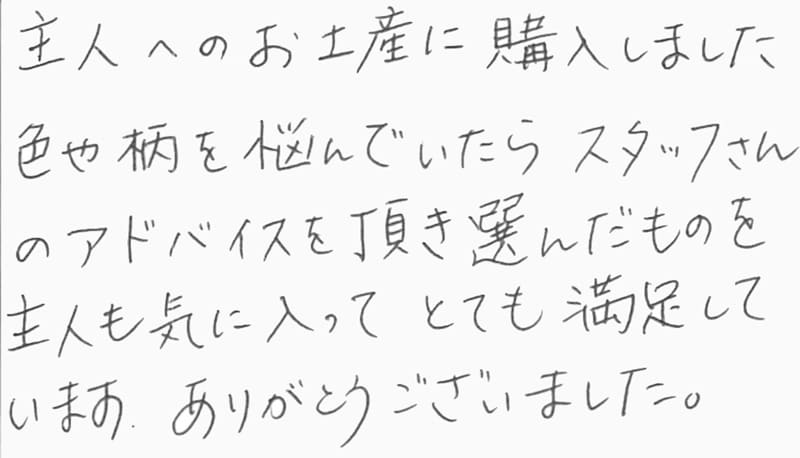 主人へのお土産に購入しました
色や柄を悩んでいたらスタッフさん
のアドバイスを頂き選んだものを
主人も気に入って とても満足して
います. ありがとうございました。